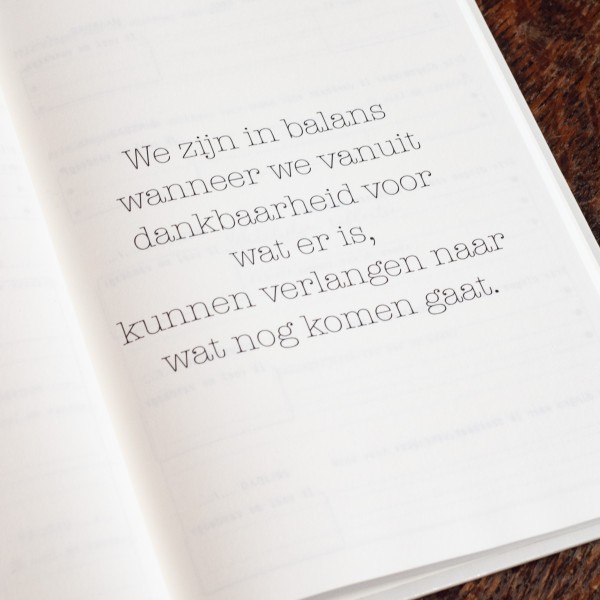 We zijn in balans
wanneer we vanuit
dankbaarheid voor
wat er is,
kunnen verlangen naar
wat nog komen gaat.